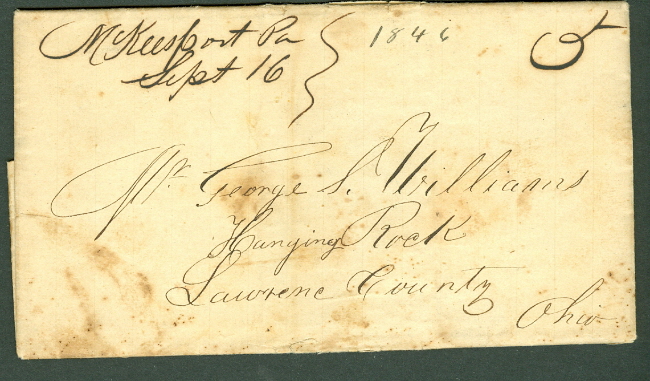 McKeesport Pa
Sept 16
1846
5
Mr. George S. Williams
Hanging Rock
Lawrenc County
Ohio